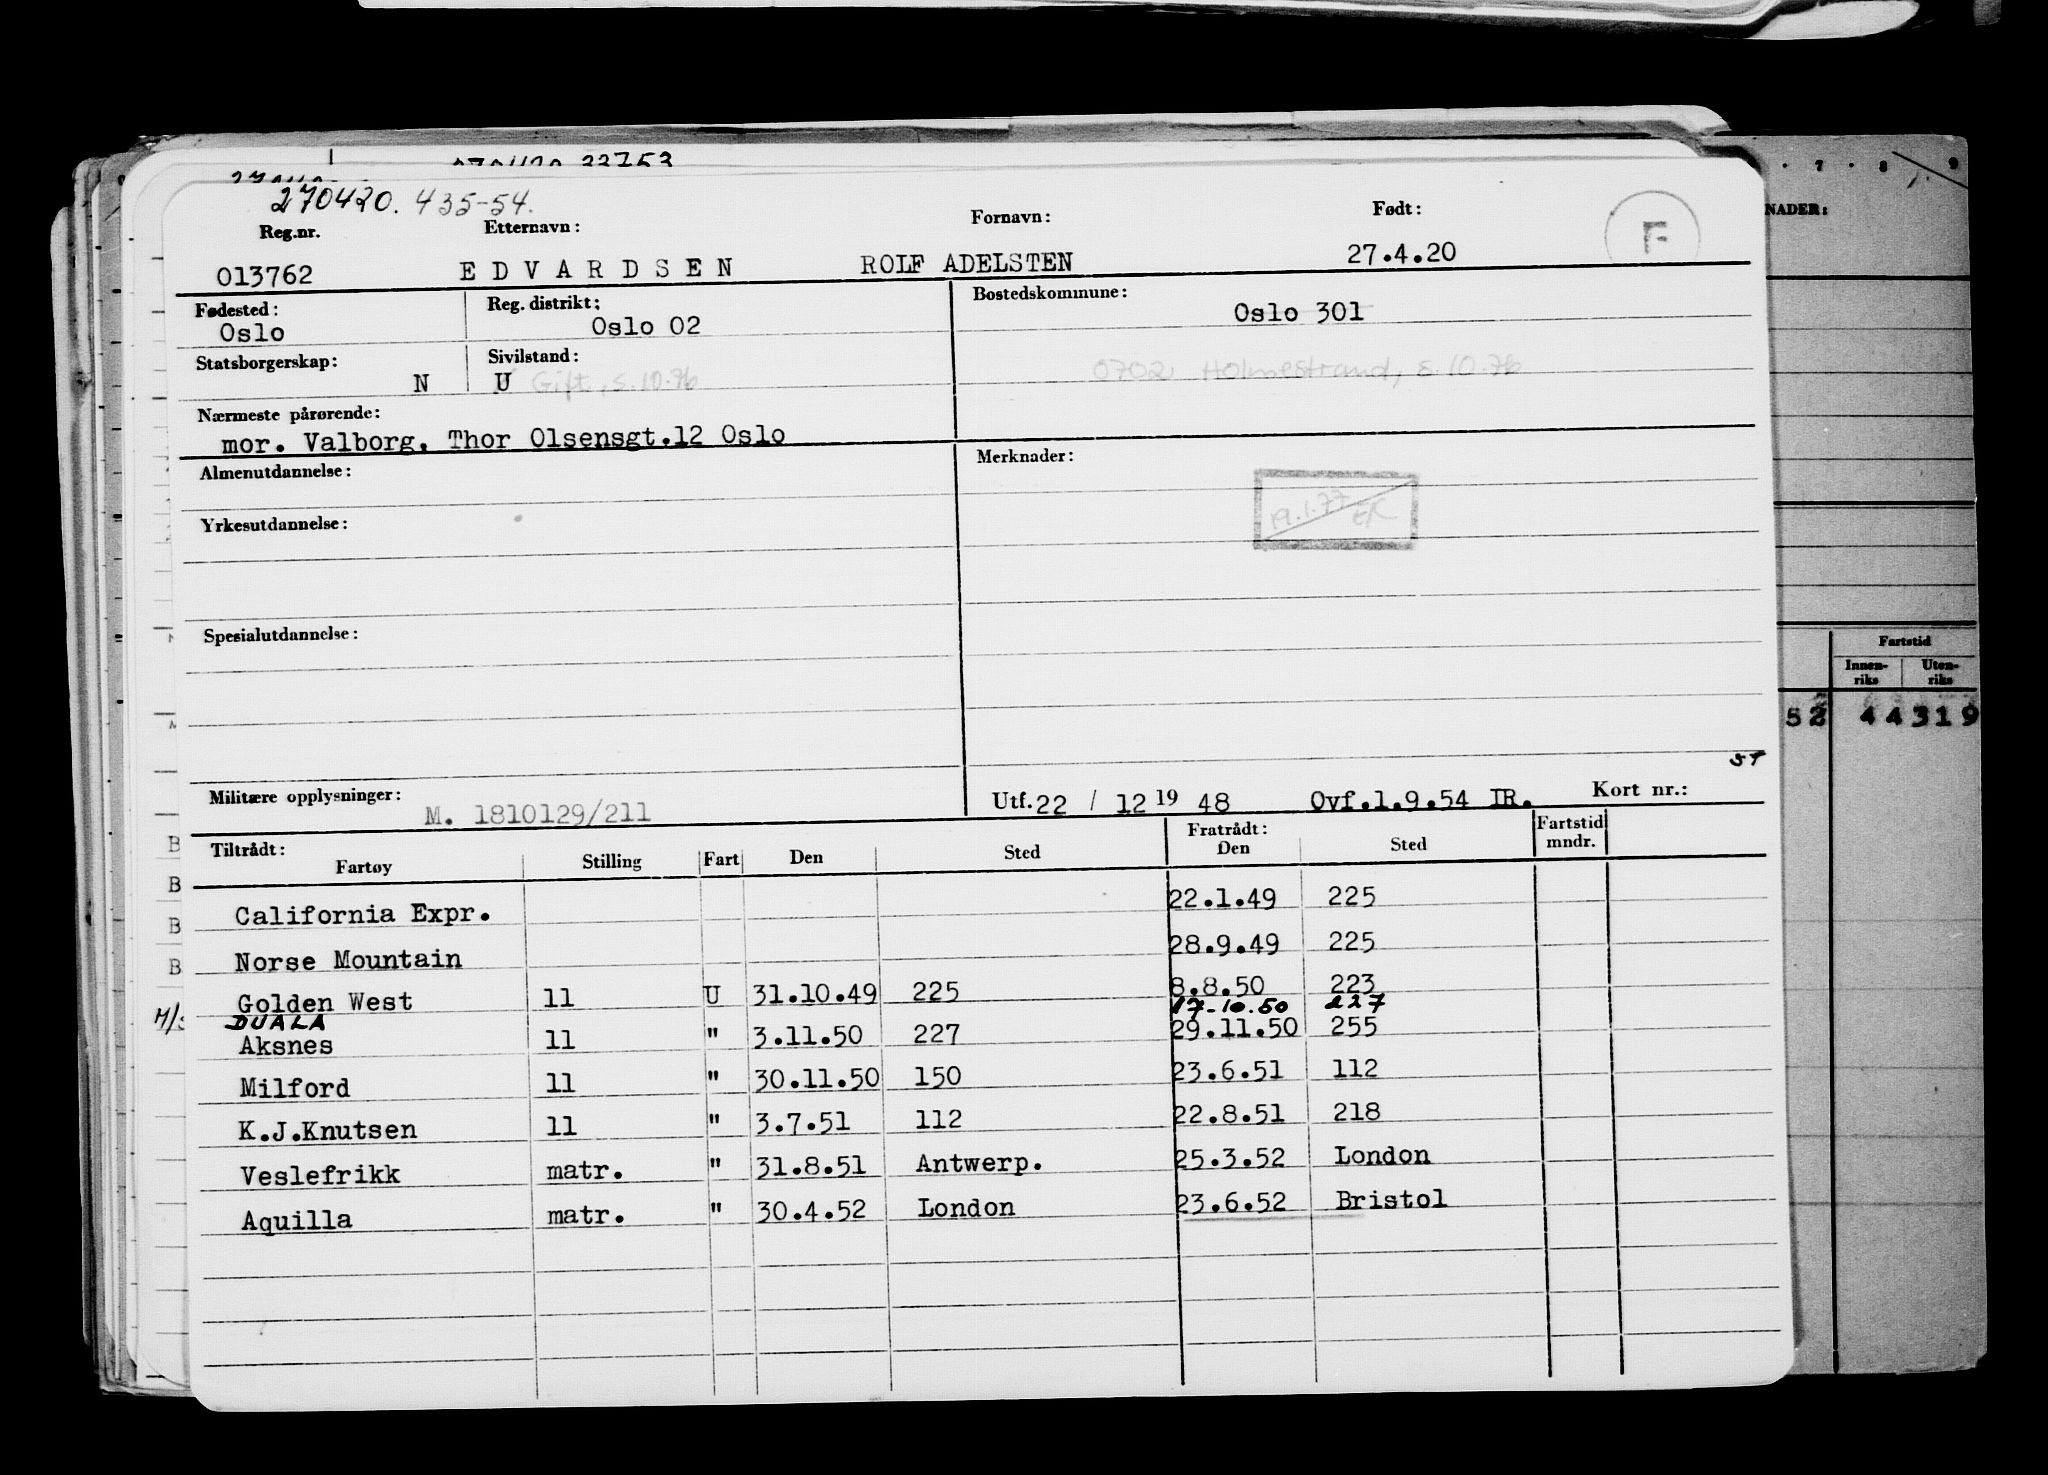 270420. 435-54.
Reg.nr. Etternavn: Fornavn: Født: F
013762 EDVARDSEN ROLF ADELSTEN 27.4.20
NADER:
7 8 9
Fødested: Reg. distrikt: Bostedskommune:
Oslo Oslo 02 Oslo 301
Statsborgerskap: Sivilstand:
N U Gift, s.10.76 0702 Holmestrand, s.10.76
Nærmeste pårørende:
mor. Valborg, Thor Olsensgt.12 Oslo
Almenutdannelse: Merknader:
19.1.77 EK
Yrkesutdannelse:
Spesialutdannelse:
Fartstid
Innen-riks Uten-riks
52 44319
ST
Militære opplysninger: M. 1810129/211 Utf.22 / 12 19 48 Ovf.1.9.54 IR. Kort nr.:
Tiltrådt: Fratrådt: Fartstid mndr.
Fartøy Stilling Fart Den Sted Den Sted
California Expr. 22.1.49 225
Norse Mountain 28.9.49 225
Golden West 11 U 31.10.49 225 8.8.50 223
DUALA 17-10.50 227
Aksnes 11 " 3.11.50 227 29.11.50 255
Milford 11 " 30.11.50 150 23.6.51 112
K.J.Knutsen 11 " 3.7.51 112 22.8.51 218
Veslefrikk matr. " 31.8.51 Antwerp. 25.3.52 London
Aquilla matr. " 30.4.52 London 23.6.52 Bristol